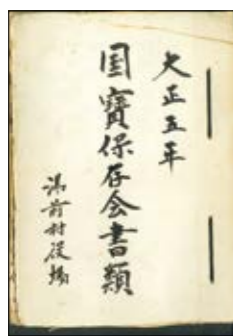 大正五年
国寳保存会書類
湯前村役場